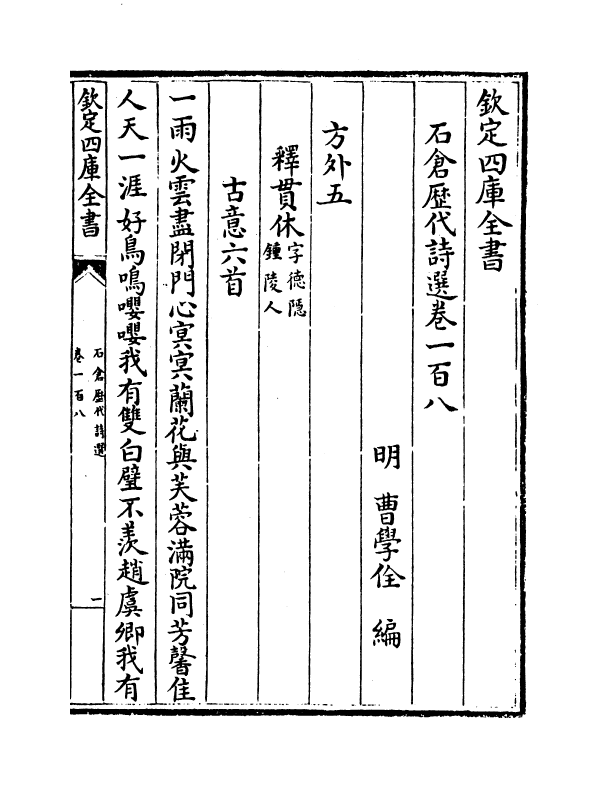 欽定四庫全書
石倉歷代詩選卷一百八
明 曹學佺 編
方外五
釋貫休字德隱鍾陵人
古意六首
一雨火雲盡閉門心冥冥蘭花與芙蓉滿院同芳馨佳
人天一涯好鳥鳴嚶嚶我有雙白璧不羨趙虞卿我有
欽定四庫全書
石倉歷代詩選
卷一百八
一